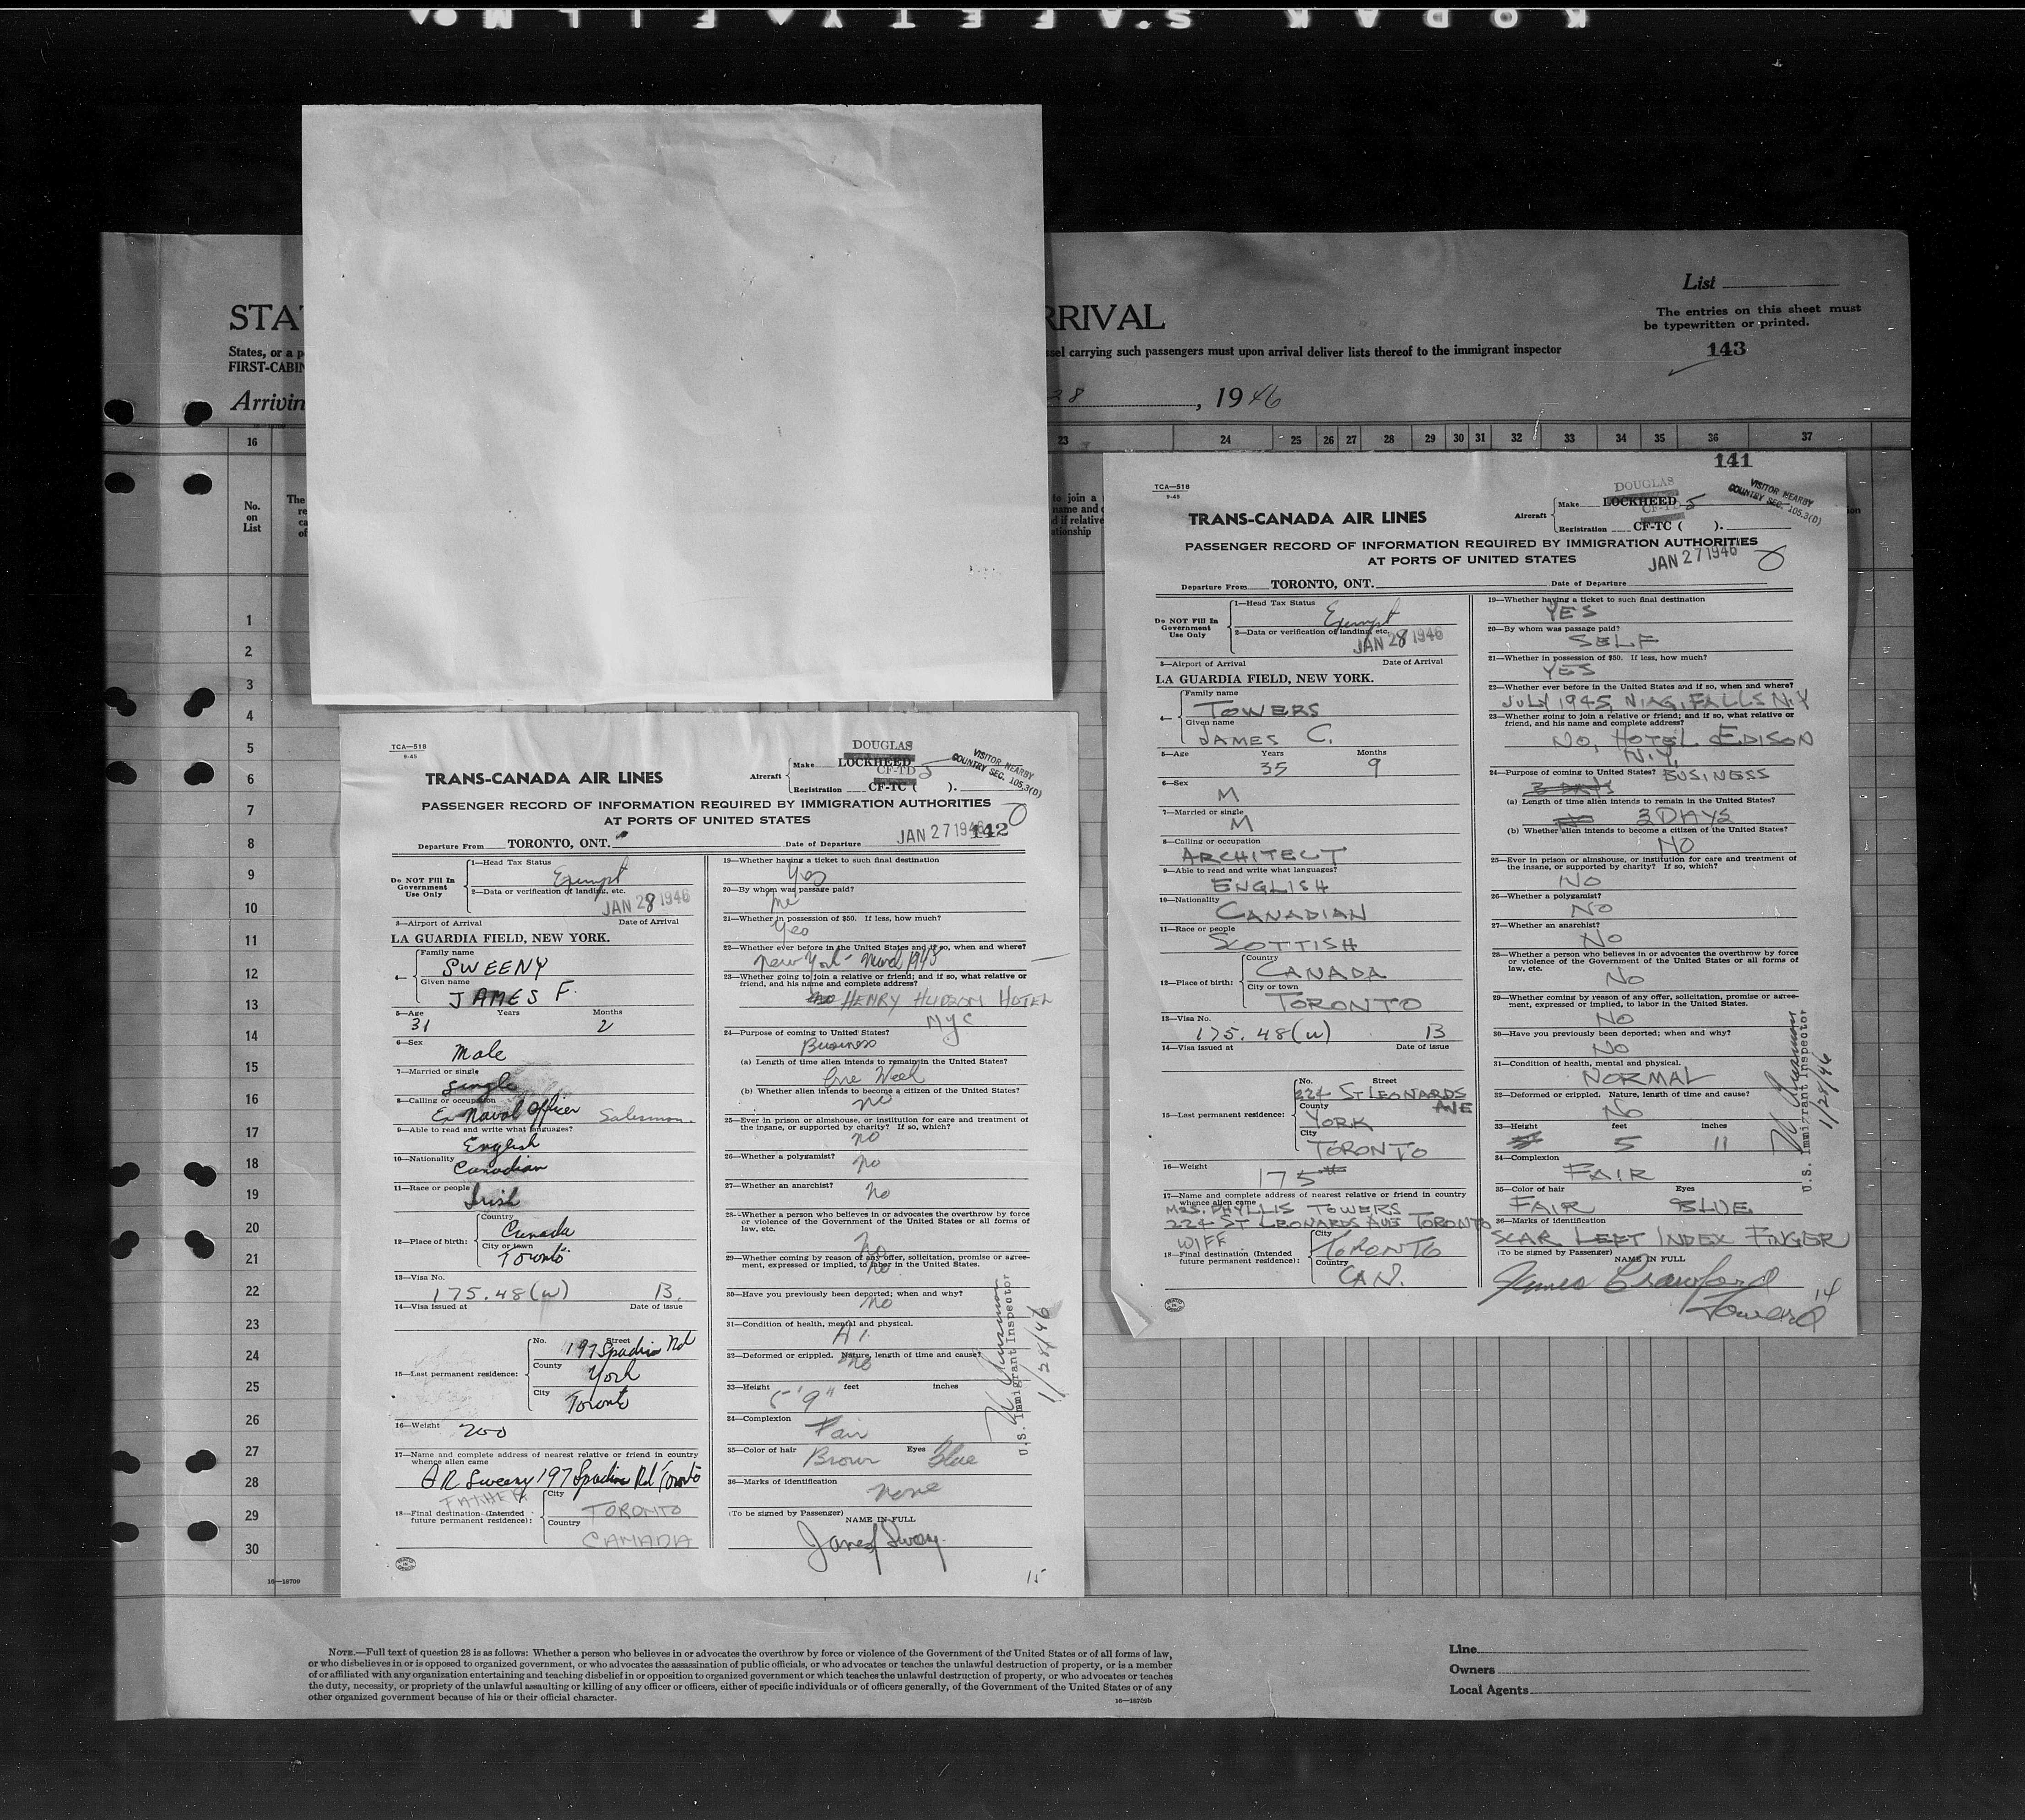 KODAK SAFETY FILM
STA
RRIVAL
List
The entries on this sheet must
be typewritten or printed.
143
States, or a p
sel carrying such passengers must upon arrival deliver lists thereof to the immigrant inspector
FIRST-CABIN
Arrivin
28, 1946
16 23 24 25 26 27 28 29 30 31 32 33 34 35 36 37
No.
on
List
1
2
3
4
5
6
7
8
9
10
11
12
13
14
15
16
17
18
19
20
21
22
23
24
25
26
27
28
29
30
16—18709
TCA—518
9-45
TRANS-CANADA AIR LINES
Aircraft
Make LOCKHEED
DOUGLAS
CF-TD 5
Registration CF-TC ( ).
VISITOR NEARBY
COUNTRY SEC. 105.3(D)
PASSENGER RECORD OF INFORMATION REQUIRED BY IMMIGRATION AUTHORITIES
AT PORTS OF UNITED STATES
JAN 27 1946
142
Departure From TORONTO, ONT. Date of Departure
Do NOT Fill In
Government
Use Only
1—Head Tax Status
Exempt
2—Data or verification of landing, etc.
JAN 28 1946
3—Airport of Arrival Date of Arrival
LA GUARDIA FIELD, NEW YORK.
4— Family name
SWEENY
Given name
JAMES F.
5—Age Years Months
31 2
6—Sex
Male
7—Married or single
Single
8—Calling or occupation
Ex Naval Officer Salesman.
9—Able to read and write what languages?
English
10—Nationality
Canadian
11—Race or people
Irish
12—Place of birth: Country
Canada
City or town
Toronto
13—Visa No.
175.48(w) B.
14—Visa issued at Date of issue
15—Last permanent residence: No. Street
197 Spadina Rd
County
York
City
Toronto
16—Weight
200
17—Name and complete address of nearest relative or friend in country
whence alien came
A R Sweeny 197 Spadina Rd Toronto
FATHER
18—Final destination (Intended
future permanent residence): City
TORONTO
Country
CANADA
19—Whether having a ticket to such final destination
Yes
20—By whom was passage paid?
me
21—Whether in possession of $50. If less, how much?
Yes
22—Whether ever before in the United States and if so, when and where?
New York - March 1945
23—Whether going to join a relative or friend; and if so, what relative or
friend, and his name and complete address?
HENRY HUDSON HOTEL
NYC
24—Purpose of coming to United States?
Business
(a) Length of time alien intends to remain in the United States?
One Week
(b) Whether alien intends to become a citizen of the United States?
no
25—Ever in prison or almshouse, or institution for care and treatment of
the insane, or supported by charity? If so, which?
no
26—Whether a polygamist?
no
27—Whether an anarchist?
no
28—Whether a person who believes in or advocates the overthrow by force
or violence of the Government of the United States or all forms of
law, etc.
No
29—Whether coming by reason of any offer, solicitation, promise or agree-
ment, expressed or implied, to labor in the United States.
No
30—Have you previously been deported; when and why?
No
31—Condition of health, mental and physical.
A1.
32—Deformed or crippled. Nature, length of time and cause?
no
33—Height feet inches
5'9"
34—Complexion
Fair
35—Color of hair Eyes
Brown Blue
36—Marks of identification
none
(To be signed by Passenger) NAME IN FULL
James F Sweeny
15
U.S. Immigrant Inspector
1/28/46
141
TCA—518
9-45
TRANS-CANADA AIR LINES
Aircraft
Make LOCKHEED
DOUGLAS
CF-TD 5
Registration CF-TC ( ).
VISITOR NEARBY
COUNTRY SEC. 105.3(D)
PASSENGER RECORD OF INFORMATION REQUIRED BY IMMIGRATION AUTHORITIES
AT PORTS OF UNITED STATES
JAN 27 1946
Departure From TORONTO, ONT. Date of Departure
Do NOT Fill In
Government
Use Only
1—Head Tax Status
Exempt
2—Data or verification of landing, etc.
JAN 28 1946
3—Airport of Arrival Date of Arrival
LA GUARDIA FIELD, NEW YORK.
4— Family name
TOWERS
Given name
JAMES C.
5—Age Years Months
35 9
6—Sex
M
7—Married or single
M
8—Calling or occupation
ARCHITECT
9—Able to read and write what languages?
ENGLISH
10—Nationality
CANADIAN
11—Race or people
SCOTTISH
12—Place of birth: Country
CANADA
City or town
TORONTO
13—Visa No.
175.48(w) B
14—Visa issued at Date of issue
15—Last permanent residence: No. Street
224 ST LEONARDS
AVE
County
YORK
City
TORONTO
16—Weight
175#
17—Name and complete address of nearest relative or friend in country
whence alien came
MRS. PHYLLIS TOWERS
224 ST LEONARDS AVE TORONTO
WIFE
18—Final destination (Intended
future permanent residence): City
TORONTO
Country
CAN.
19—Whether having a ticket to such final destination
YES
20—By whom was passage paid?
SELF
21—Whether in possession of $50. If less, how much?
YES
22—Whether ever before in the United States and if so, when and where?
JULY 1945, NIAG. FALLS N.Y
23—Whether going to join a relative or friend; and if so, what relative or
friend, and his name and complete address?
NO, HOTEL EDISON
N.Y.
24—Purpose of coming to United States? BUSINESS
3 DAYS
(a) Length of time alien intends to remain in the United States?
3 DAYS
(b) Whether alien intends to become a citizen of the United States?
NO
25—Ever in prison or almshouse, or institution for care and treatment of
the insane, or supported by charity? If so, which?
NO
26—Whether a polygamist?
NO
27—Whether an anarchist?
NO
28—Whether a person who believes in or advocates the overthrow by force
or violence of the Government of the United States or all forms of
law, etc.
NO
29—Whether coming by reason of any offer, solicitation, promise or agree-
ment, expressed or implied, to labor in the United States.
NO
30—Have you previously been deported; when and why?
NO
31—Condition of health, mental and physical.
NORMAL
32—Deformed or crippled. Nature, length of time and cause?
NO
33—Height feet inches
5 11
34—Complexion
FAIR
35—Color of hair Eyes
FAIR BLUE
36—Marks of identification
SCAR LEFT INDEX FINGER
(To be signed by Passenger) NAME IN FULL
James Crawford
Towers
14
U.S. Immigrant Inspector
1/28/46
NOTE.—Full text of question 28 is as follows: Whether a person who believes in or advocates the overthrow by force or violence of the Government of the United States or of all forms of law,
or who disbelieves in or is opposed to organized government, or who advocates the assassination of public officials, or who advocates or teaches the unlawful destruction of property, or is a member
of or affiliated with any organization entertaining and teaching disbelief in or opposition to organized government or which teaches the unlawful destruction of property, or who advocates or teaches
the duty, necessity, or propriety of the unlawful assaulting or killing of any officer or officers, either of specific individuals or of officers generally, of the Government of the United States or of any
other organized government because of his or their official character.
16—18709b
Line
Owners
Local Agents